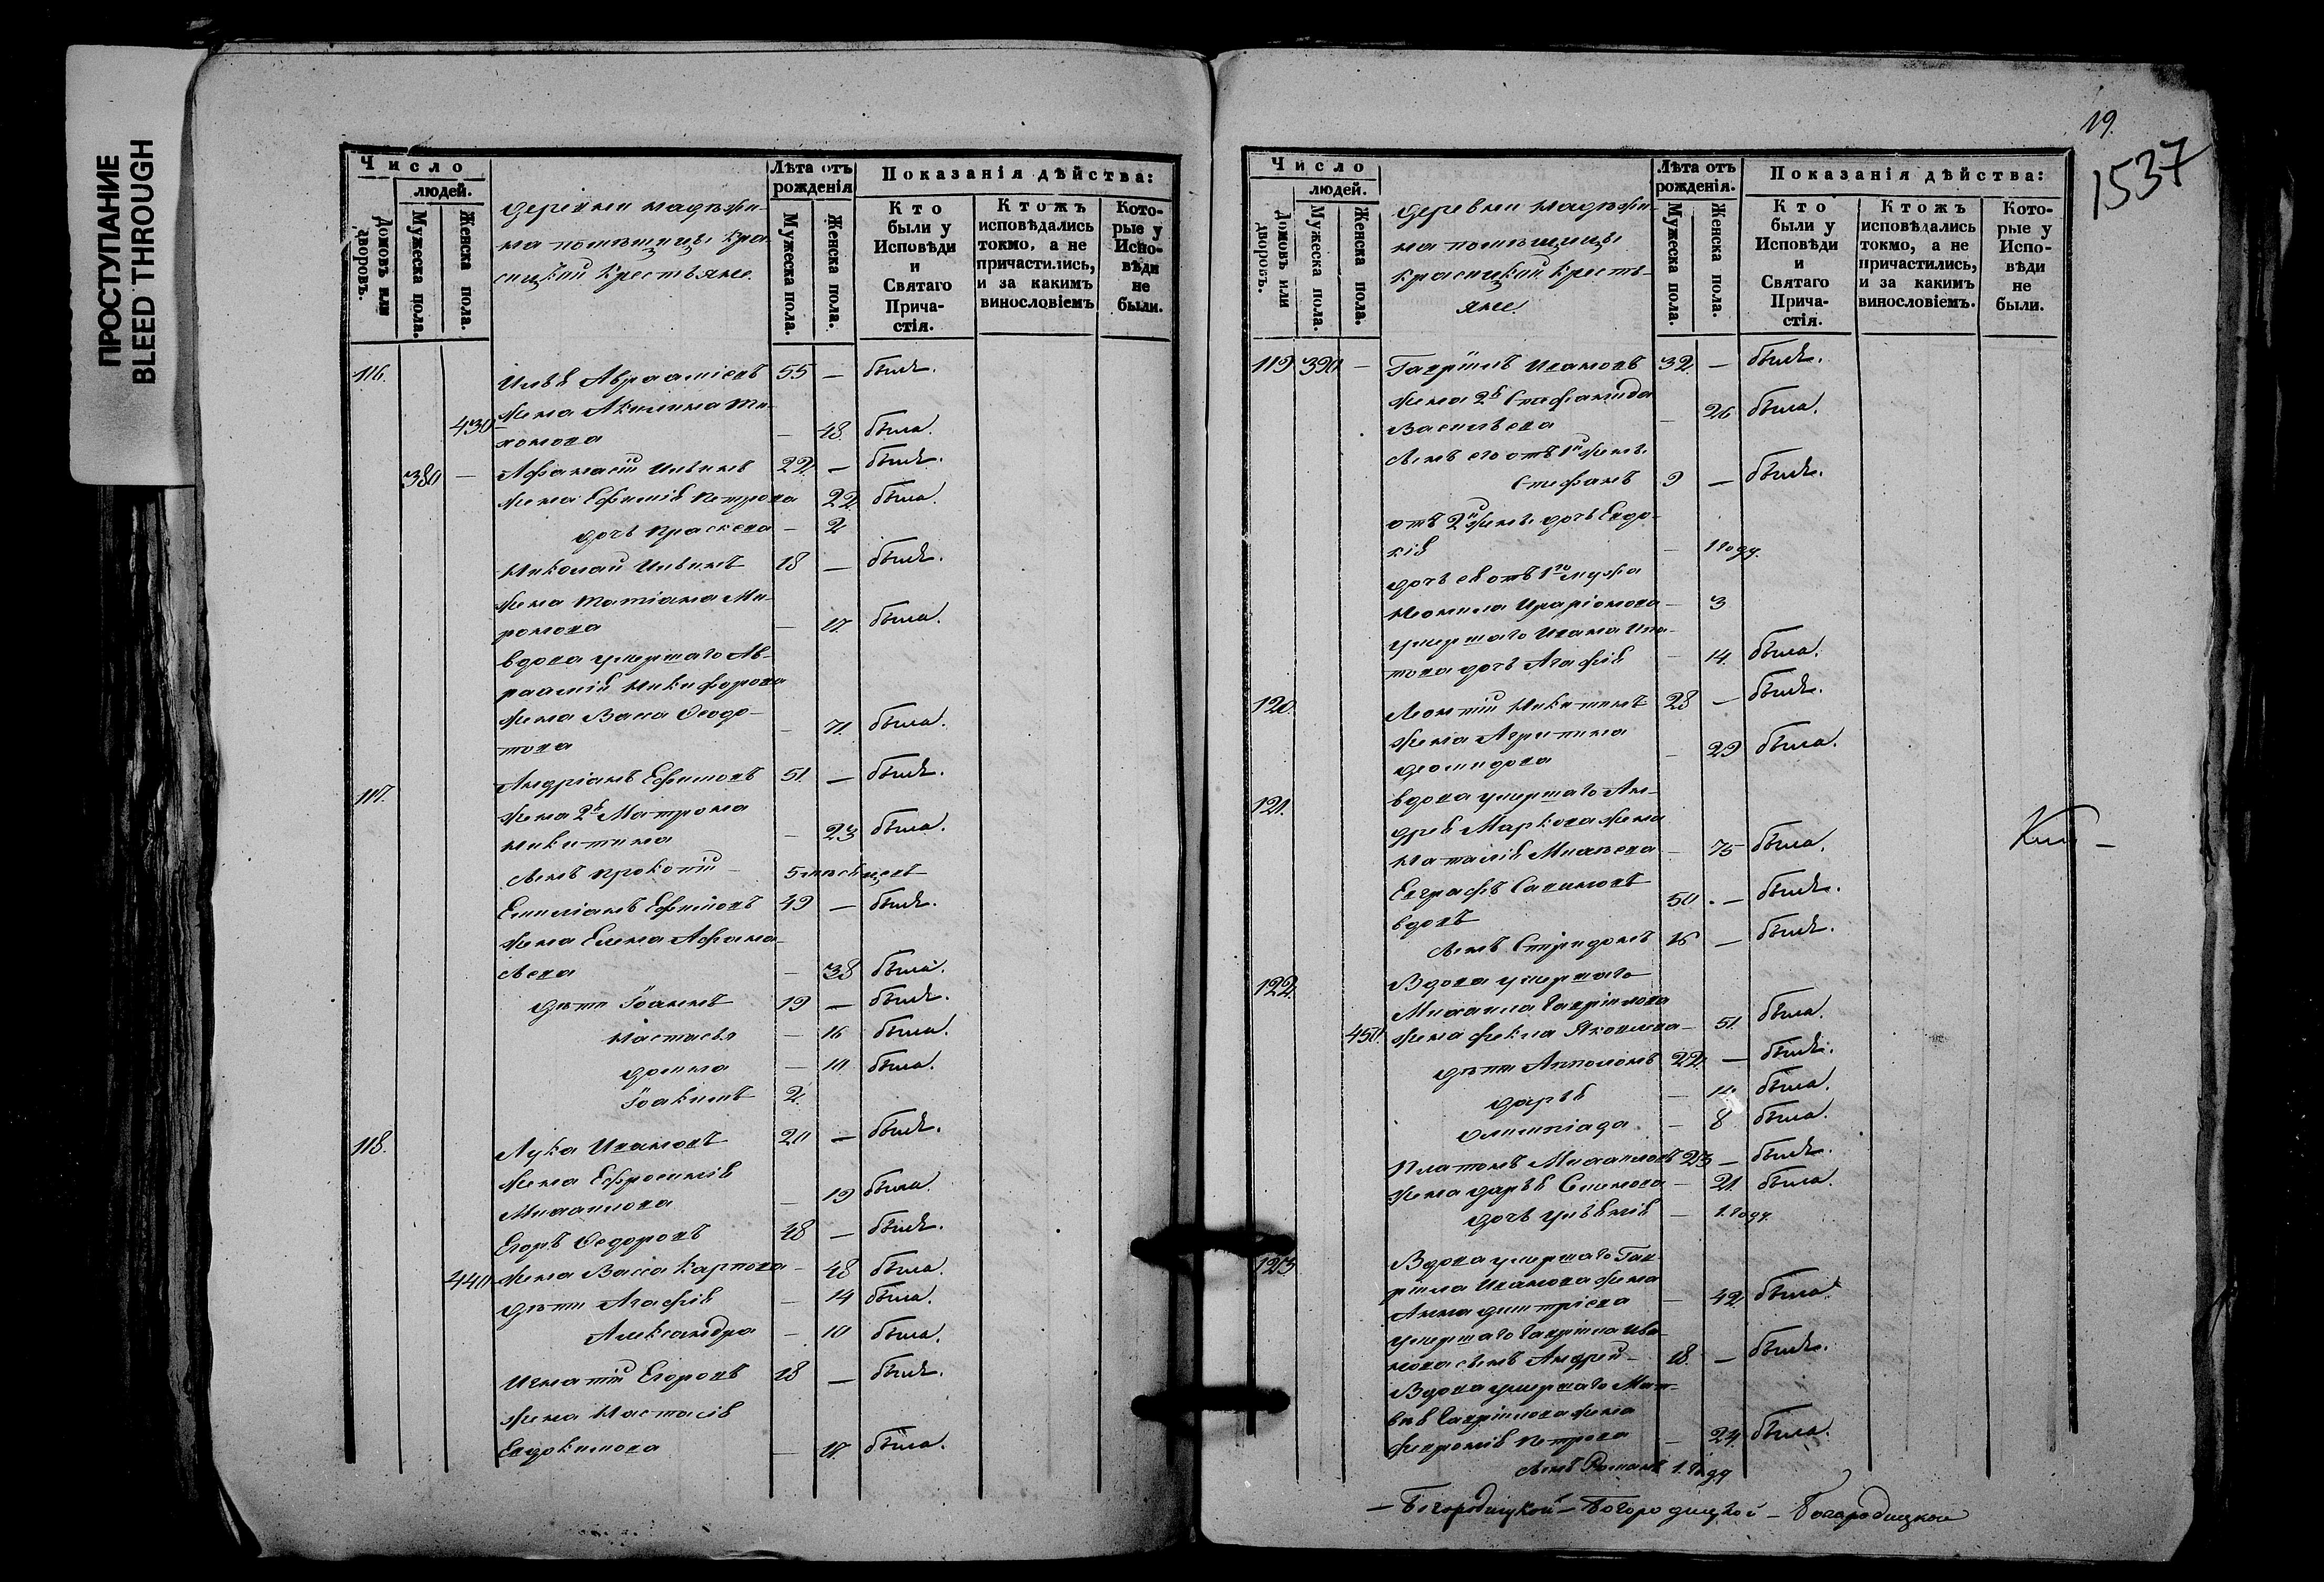 ПРОСТУПАНИЕ
BLEED THROUGH
Число
людей.
Домовъ или дворовъ.
Мужеска пола.
Женска пола.
деревни надѣжи-
на помѣщицы Кра-
сицкой крестьяне.
Лѣта отъ рожденія
Мужеска пола.
Женска пола.
Показанія дѣйства:
Кто были у Исповѣди и Святаго Прича- стія.
Ктожъ исповѣдались токмо, а не причастились, и за какимъ винословіемъ
Кото- рые у Испо- вѣди не были.
116. Илья Авраамiевъ 55 — былъ.
жена Акилина Ти-
430 хонова — 48 была.
380 — Афанасiй Ильинъ 22 — былъ.
жена Ефимiя Петрова 22 была.
дочь Праскева — 2
Николай Ильинъ 18 — былъ.
жена Татiана Ми-
ронова — 17. была.
вдова умершаго Ав-
раамiя Никифорова
жена Васа Ѳеодо-
това — 71. была.
117. Андрiанъ Ефимовъ 51. — былъ.
жена 2я Матрона
Никитина — 23 была.
сынъ Прокопiй — 5 мѣсяцевъ
Емилiанъ Ефимовъ 49 — былъ.
жена Елена Афана-
сьева — 38 была.
дѣти Iоаннъ 19 — былъ.
Настасья — 16 была.
Домна — 10 была.
Iоакимъ 2.
118. Лука Ивановъ 20 — былъ.
жена Ефросинiя
Михаилова — 19 была.
Егоръ Ѳедоровъ 48 — былъ.
440 жена Васса Карпова — 48 была.
дѣти Агафiя — 14 была.
Александра — 10 была.
Игнатiй Егоровъ 18 — былъ.
жена Настасiя
Евдокимова — 17. была.
19.
1537
Число
людей.
Домовъ или дворовъ.
Мужеска пола.
Женска пола.
деревни надѣжи-
на помѣщицы
Красицкой кресть-
яне.
Лѣта отъ рожденія.
Мужеска пола.
Женска пола.
Показанія дѣйства:
Кто были у Исповѣди и Святаго Прича- стія.
Ктожъ исповѣдались токмо, а не причастились, и за какимъ винословіемъ.
Кото- рые у Испо- вѣди не были.
119 390 — Гаврiилъ Ивановъ 32 — былъ.
жена 2я Степанида
Васильева — 26 была.
сынъ его отъ 1й жены
Стефанъ 9 — былъ.
отъ 2й жены дочь Евдо-
кiя — 1 году.
дочь ея отъ 1го мужа
Неонила Иларiонова — 3
умершаго Ивана Ипа-
това дочь Агафiя — 14. была.
120. Леонтiй Никитинъ 28 — былъ.
жена Агрипина
Деомидова — 29 была.
121. вдова умершаго Ан-
дрея Маркова жена
Наталiя Михѣева — 75 была.
Евграфъ Савиновъ
вдовъ 50 — былъ.
сынъ Спиридонъ 16 — былъ.
122. Вдова умершаго
Михаила Гаврiилова
450 жена Фекла Яковлева — 51. была.
дѣти Апполонъ 22. — былъ.
Дарья — 14. была.
Олимпiада — 8 была.
Платонъ Михаиловъ 23 — былъ.
жена Дарья Семенова — 21. была.
дочь Ульянiя — 1 году.
123 Вдова умершаго Гав-
рiила Иванова жена
Анна Дмитрiева — 42 была.
умершаго Гаврiила Ива-
нова сынъ Андрей — 18. — былъ.
Вдова умершаго Мат-
вѣя Гаврiилова жена
Февронiя Петрова — 24. была.
сынъ Романъ 1. году
— Богородицкой — Богородицкой — Богородицкой